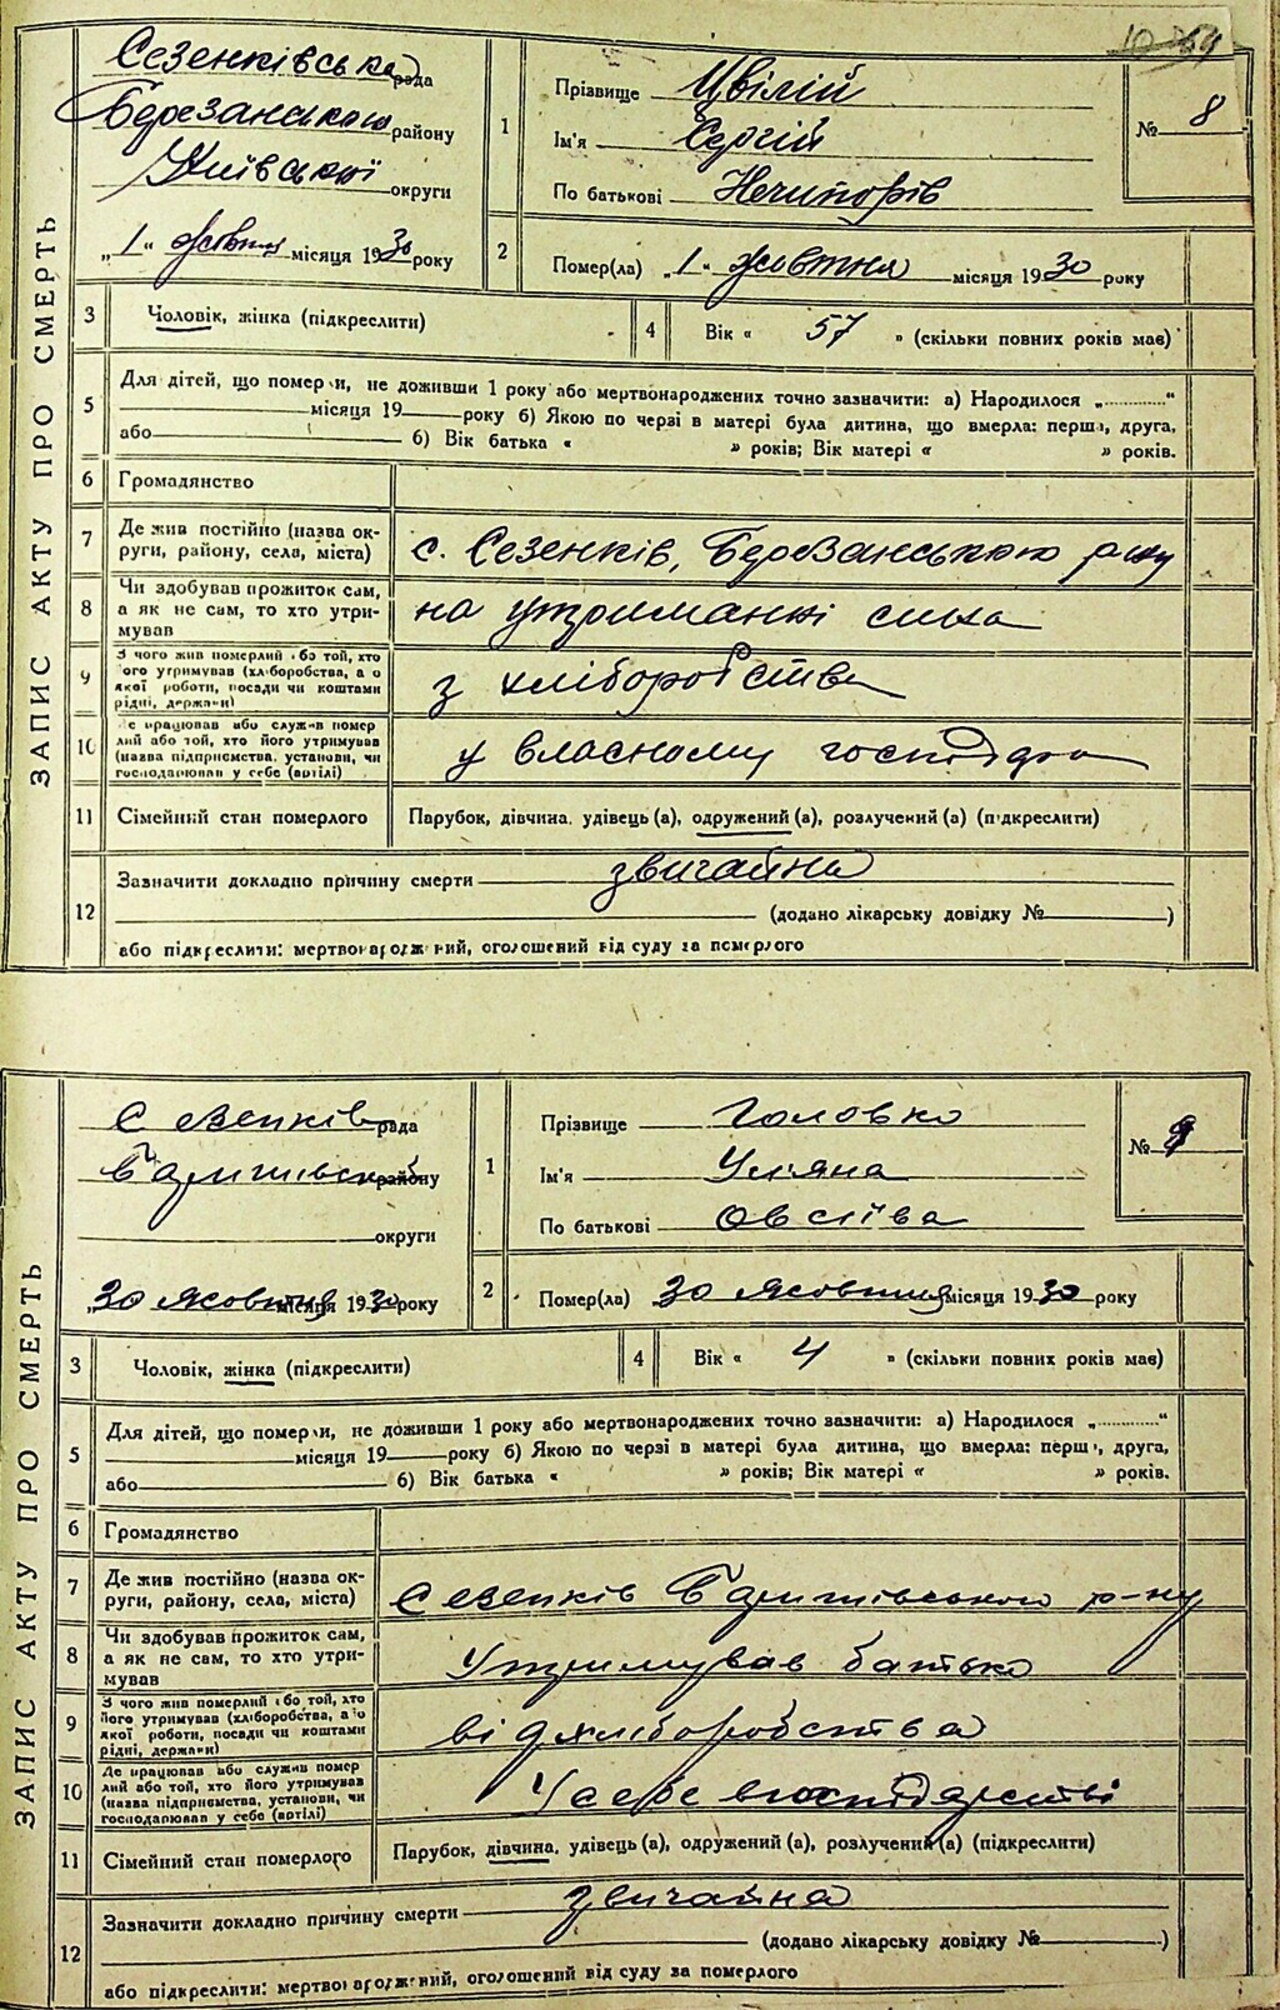 ЗАПИС АКТУ ПРО СМЕРТЬ
Сезенківська рада
Березанського району
Київської округи
„1“ жовтня місяця 1930 року
1
Прізвище Цвілій
Ім'я Сергій
По батькові Нечипорів
№ 8
2
Помер(ла) „1“ жовтня місяця 1930 року
3
Чоловік, жінка (підкреслити)
4
Вік « 57 » (скільки повних років має)
5
Для дітей, що померли, не доживши 1 року або мертвонароджених точно зазначити: а) Народилося „............“
місяця 19 року б) Якою по черзі в матері була дитина, що вмерла: перша, друга,
або б) Вік батька « » років; Вік матері « » років.
6
Громадянство
7
Де жив постійно (назва ок-
руги, району, села, міста)
с. Сезенків, Березанського р-ну
8
Чи здобував прожиток сам,
а як не сам, то хто утри-
мував
на утриманні сина
9
З чого жив померлий або той, хто
його утримував (хліборобства, або
якої роботи, посади чи коштами
рідні, держави)
з хліборобства
10
Де працював або служив помер
лий або той, хто його утримував
(назва підприємства, установи, чи
господарював у себе (артілі)
у власному
11
Сімейний стан померлого
Парубок, дівчина, удівець (а), одружений (а), розлучений (а) (підкреслити)
12
Зазначити докладно причину смерти звичайна
(додано лікарську довідку № )
або підкреслити: мертвонароджений, оголошений від суду за померлого
ЗАПИС АКТУ ПРО СМЕРТЬ
Сезенків рада
Баришівськ району
округи
„30 жовтня місяця 1930 року
1
Прізвище Головко
Ім'я Уляна
По батькові Овсіїва
№ 9
2
Помер(ла) „30 жовтня місяця 1930 року
3
Чоловік, жінка (підкреслити)
4
Вік « 4 » (скільки повних років має)
5
Для дітей, що померли, не доживши 1 року або мертвонароджених точно зазначити: а) Народилося „............“
місяця 19 року б) Якою по черзі в матері була дитина, що вмерла: перша, друга,
або б) Вік батька « » років; Вік матері « » років.
6
Громадянство
7
Де жив постійно (назва ок-
руги, району, села, міста)
Сезенків Баришівського р-ну
8
Чи здобував прожиток сам,
а як не сам, то хто утри-
мував
Утримував батько
9
З чого жив померлий або той, хто
його утримував (хліборобства, або
якої роботи, посади чи коштами
рідні, держави)
від хліборобства
10
Де працював або служив помер
лий або той, хто його утримував
(назва підприємства, установи, чи
господарював у себе (артілі)
У себе в господарстві
11
Сімейний стан померлого
Парубок, дівчина, удівець (а), одружений (а), розлучений (а) (підкреслити)
12
Зазначити докладно причину смерти звичайна
(додано лікарську довідку № )
або підкреслити: мертвонароджений, оголошений від суду за померлого